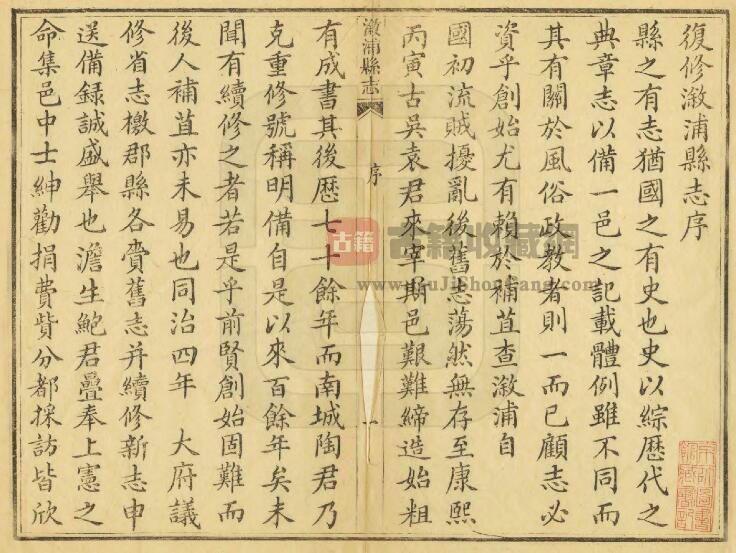 復修溆浦縣志序
縣之有志猶國之有史也史以綜歷代之
典章志以備一邑之記載體例雖不同而
其有關於風俗政教者則一而已顧志必
資乎創始尤有賴於補苴查溆浦自
國初流賊擾亂後舊志蕩然無存至康熙
丙寅古吳袁君來宰斯邑艱難締造始粗
溆浦縣志
序
一
有成書其後歷七十餘年而南城陶君乃
克重修號稱明備自是以來百餘年矣未
聞有續修之者若是乎前賢創始固難而
後人補苴亦未易也同治四年 大府議
修省志檄郡縣各賫舊志并續修新志申
送備錄誠盛舉也澹生鮑君疊奉上憲之
命集邑中士紳勸捐費貲分都採訪皆欣
古籍
古籍收藏網
www.GuJiShouCang.com